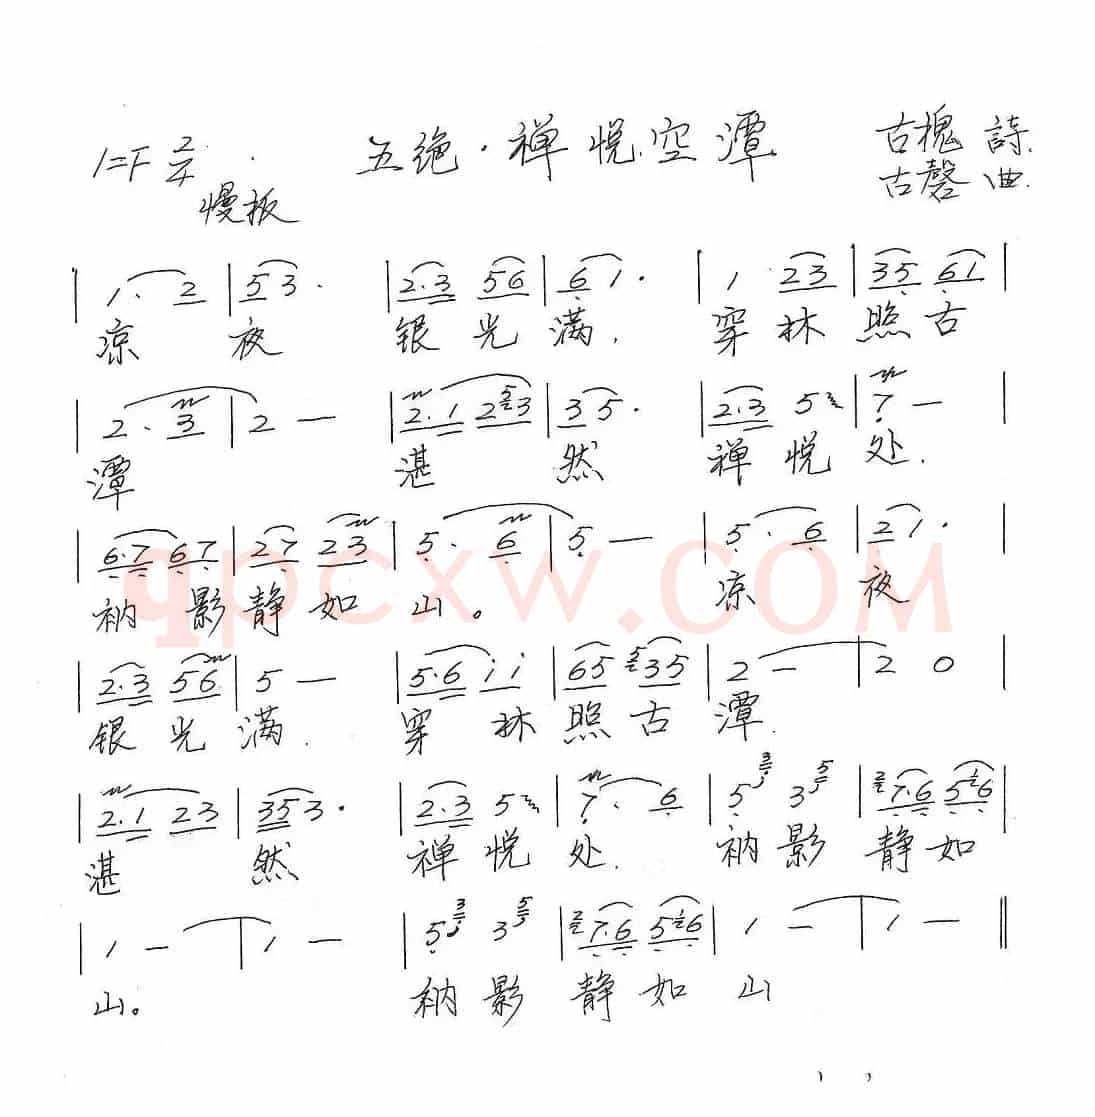 1=F 2/4 五绝·禅悦空潭 古槐 詩
慢板 古磬 曲
| 1· 2 | 5 3· | 2·3 56 | 6 1· | 1 23 | 35 61 |
凉 夜 银光满, 穿林照古
| 2· 3 | 2 — | 2·1 2 5 3 | 3 5· | 2·3 5 | 7 — |
潭 湛 然 禅悦处.
| 6·7 67 | 27 23 | 5· 6 | 5 — | 5· 6 | 2 1· |
衲影静如山。 凉 夜
| 2·3 56 | 5 — | 5·6 i i | 65 5 35 | 2 — | 2 0 |
银光满. 穿林照古潭.
| 2·1 23 | 35 3· | 2·3 5 | 7· 6 | 5 3 3 5 | 2 7·6 5 1 6 |
湛 然 禅悦处. 衲影静如
| 1 — | 1 — | 5 3 3 5 | 2 7·6 5 1 6 | 1 — | 1 — ‖
山。 衲影静如山
qpcxw.COM